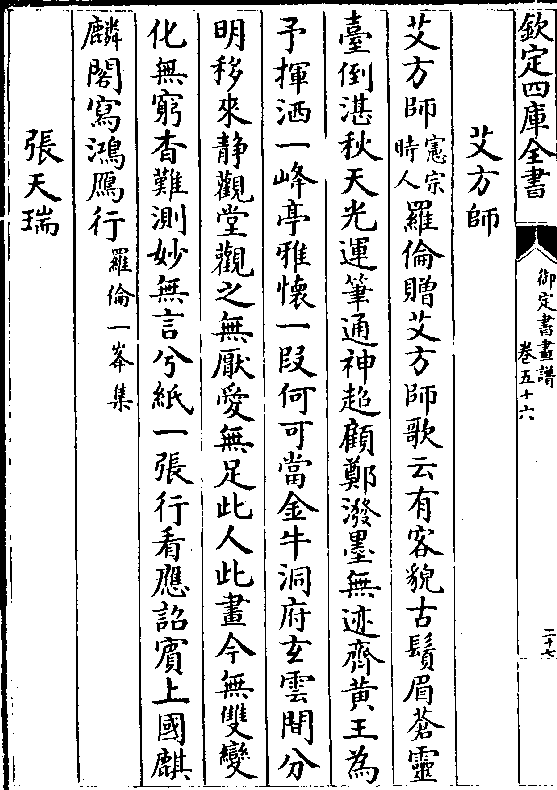 欽定四庫全書
御定書畫譜
卷五十六
二十七
艾方師
艾方師憲宗時人羅倫贈艾方師歌云有客貌古鬚眉蒼靈
臺倒湛秋天光運筆通神超顧鄭潑墨無迹齊黄王為
予揮洒一峰亭雅懷一段何可當金牛洞府玄雲間分
明移來静觀堂觀之無厭愛無足此人此畫今無雙變
化無窮杳難測妙無言兮紙一張行看應詔賓上國麒
麟閣寫鴻鴈行羅倫一峯集
張天瑞